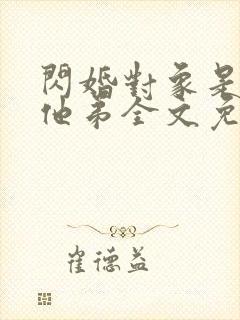 閃婚對象是
他弟全文免
崔德益